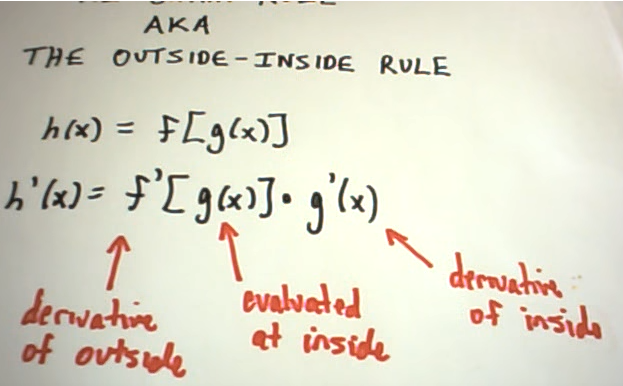 AKA
THE OUTSIDE-INSIDE RULE
h(x) = f[g(x)]
h'(x) = f'[g(x)]·g'(x)
derivative
of outside
evaluated
at inside
derivative
of inside